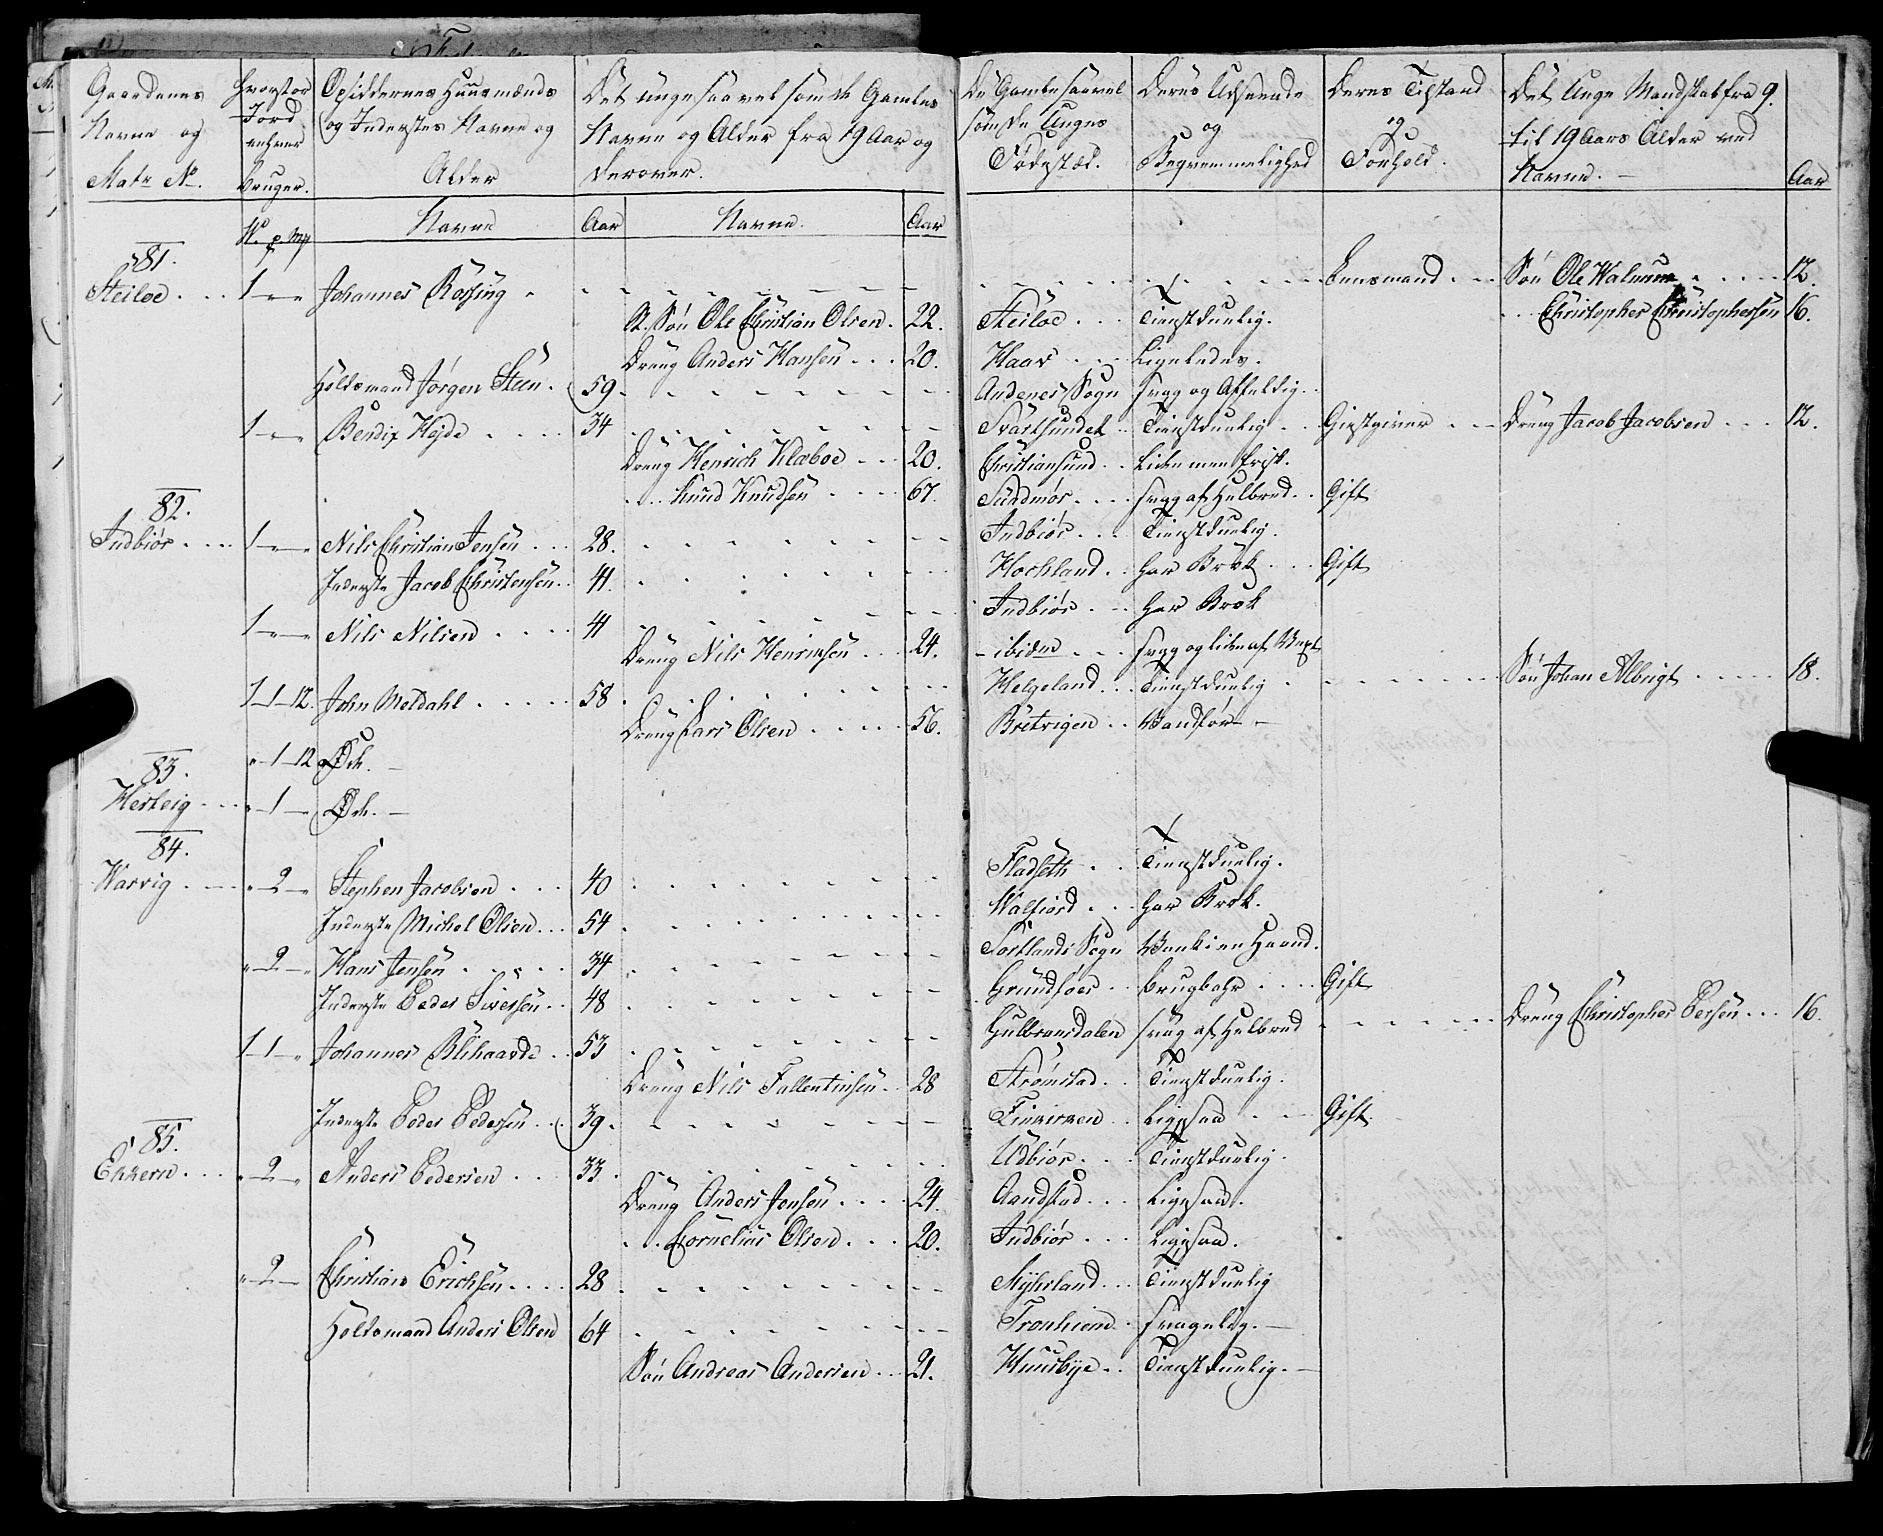 Gaardenes Navne og Matr No.
Hvorstor Jord enhver bruger.
Opsiddernes Huusmænds og Inderstes Navne og Alder
Det unge saavel som de Gamles Navne og Alder fra 19 Aar og derover.
De Gamle saavel som De Unges Fødested.
Deres Udseende og Beqvemmelighed
Deres Tilstand og Forhold.
Det Unge Mandskab fra 9. til 19 Aars Alder ved Navne. Aar
Navne Aar Navne. Aar
81.
Steiloe 1 Johannes Rossing Lensmand Søn Ole Walnum 12.
St. Søn Ole Christian Olsen 22. Steiloe Tienstduelig. Christopher Christophersen 16.
Dreng Anders Hansen 20. Haav Ligeledes.
Holdsmand Jørgen Steen 59 Andenes Sogn svag og Affeldig
1 Bendix Hejde 34 Svartsundet Tienstduelig Giestgiver Dreng Jacob Jacobsen 12.
Dreng Henrich Klæboe 20. Christiansund Liden men frisk.
Knud Knudsen 67. Sundmør svag af Helbred Gift
82.
Indbiør 1 Nils Christian Jensen 28. Indbiør Tienstduelig.
Inderste Jacob Christensen 41. Hochland har Brok Gift
1 Nils Nilsen 41 Indbiør har Brok
Dreng Nils Henrichsen 24. ibidem svag og liden af Vext
1 1 12. John Meldahl 58 Helgeland Tienstduelig Søn Johan Albrigt 18.
Dreng Lars Olsen 56. Bretvigen Vanfør
1 12 Øde.
83.
Hesteig 1 Øde.
84.
Warvig 2 Stephen Jacobsen 40 Fladseth Tienstduelig.
Inderste Michel Olsen 54 Walfiord har Brok.
2 Hans Jensen 34 Sortlands Sogn Vank i en Haand.
Inderste Peder Siversen 48 Grundfoer brugbahr Gift
1 1 Johannes Blihaarde 53 Gulbransdalen svag af Helbred Dreng Christopher Persen 16.
Dreng Nils Fallentinsen 28 Strømstad Tienstduelig.
Inderste Peder Pedersen 39. Finvicken Ligesaa Gift
85.
Ekkern 2 Anders Pedersen 33 Udbiør Tienstduelig.
Dreng Anders Jensen 24. Aandstad Ligesaa.
Cornelius Olsen 20. Indbiør Ligesaa.
2 Christian Erichsen 28 Myhrland Tienstduelig
Holdsmand Anders Olsen 64 Tronhiem svagelig.
Søn Andreas Andersen 21. Huusbye Tienstduelig.